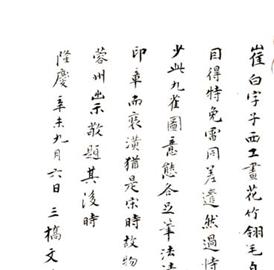 崔白字子西工畫花竹翎毛
因得特免雷同差遣然過恃
少此九雀圖意態各足筆法
印章而裝潢猶是宋時故物
蓉州出示敬題其後時
隆慶辛未九月六日三橋文